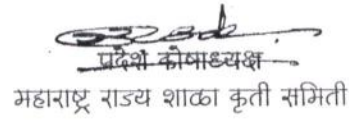 प्रदेश कोषाध्यक्ष
महाराष्ट्र राज्य शाळा कृती समिती